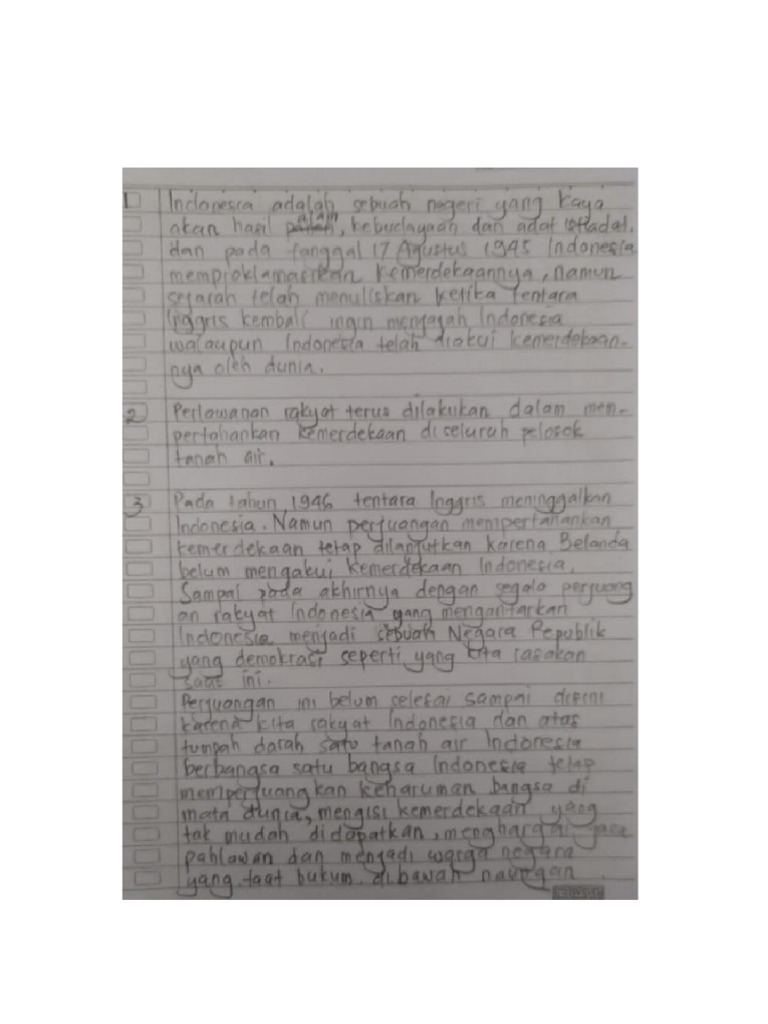 1 Indonesia adalah sebuah negeri yang kaya
akan hasil alam, kebudayaan dan adat istiadat.
dan pada tanggal 17 Agustus 1945 Indonesia
memproklamasikan kemerdekaannya, namun
sejarah telah menuliskan ketika tentara
Inggris kembali ingin menjajah Indonesia
walaupun Indonesia telah diakui kemerdekaan-
nya oleh dunia.
2 Perlawanan rakyat terus dilakukan dalam mem-
pertahankan kemerdekaan diseluruh pelosok
tanah air.
3 Pada tahun 1946 tentara Inggris meninggalkan
Indonesia. Namun perjuangan mempertahankan
kemerdekaan tetap dilanjutkan karena Belanda
belum mengakui kemerdekaan Indonesia,
Sampai pada akhirnya dengan segala perjuang
an rakyat Indonesia yang mengantarkan
Indonesia menjadi sebuah Negara Republik
yang demokrasi seperti yang kita rasakan
saat ini.
Perjuangan ini belum selesai sampai disini
karena kita rakyat Indonesia dan atas
tumpah darah satu tanah air Indonesia
berbangsa satu bangsa Indonesia tetap
memperjuangkan keharuman bangsa di
mata dunia, mengisi kemerdekaan yang
tak mudah didapatkan, menghargai jasa
pahlawan dan menjadi warga negara
yang taat hukum dibawah naungan